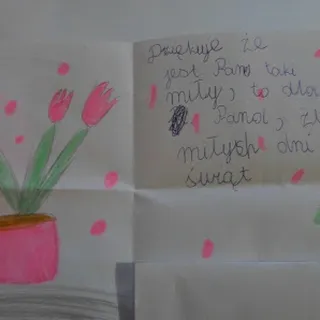 Dziękuję że
jest Pan taki
miły, to dla
Pana, ży
miłych dni
świąt